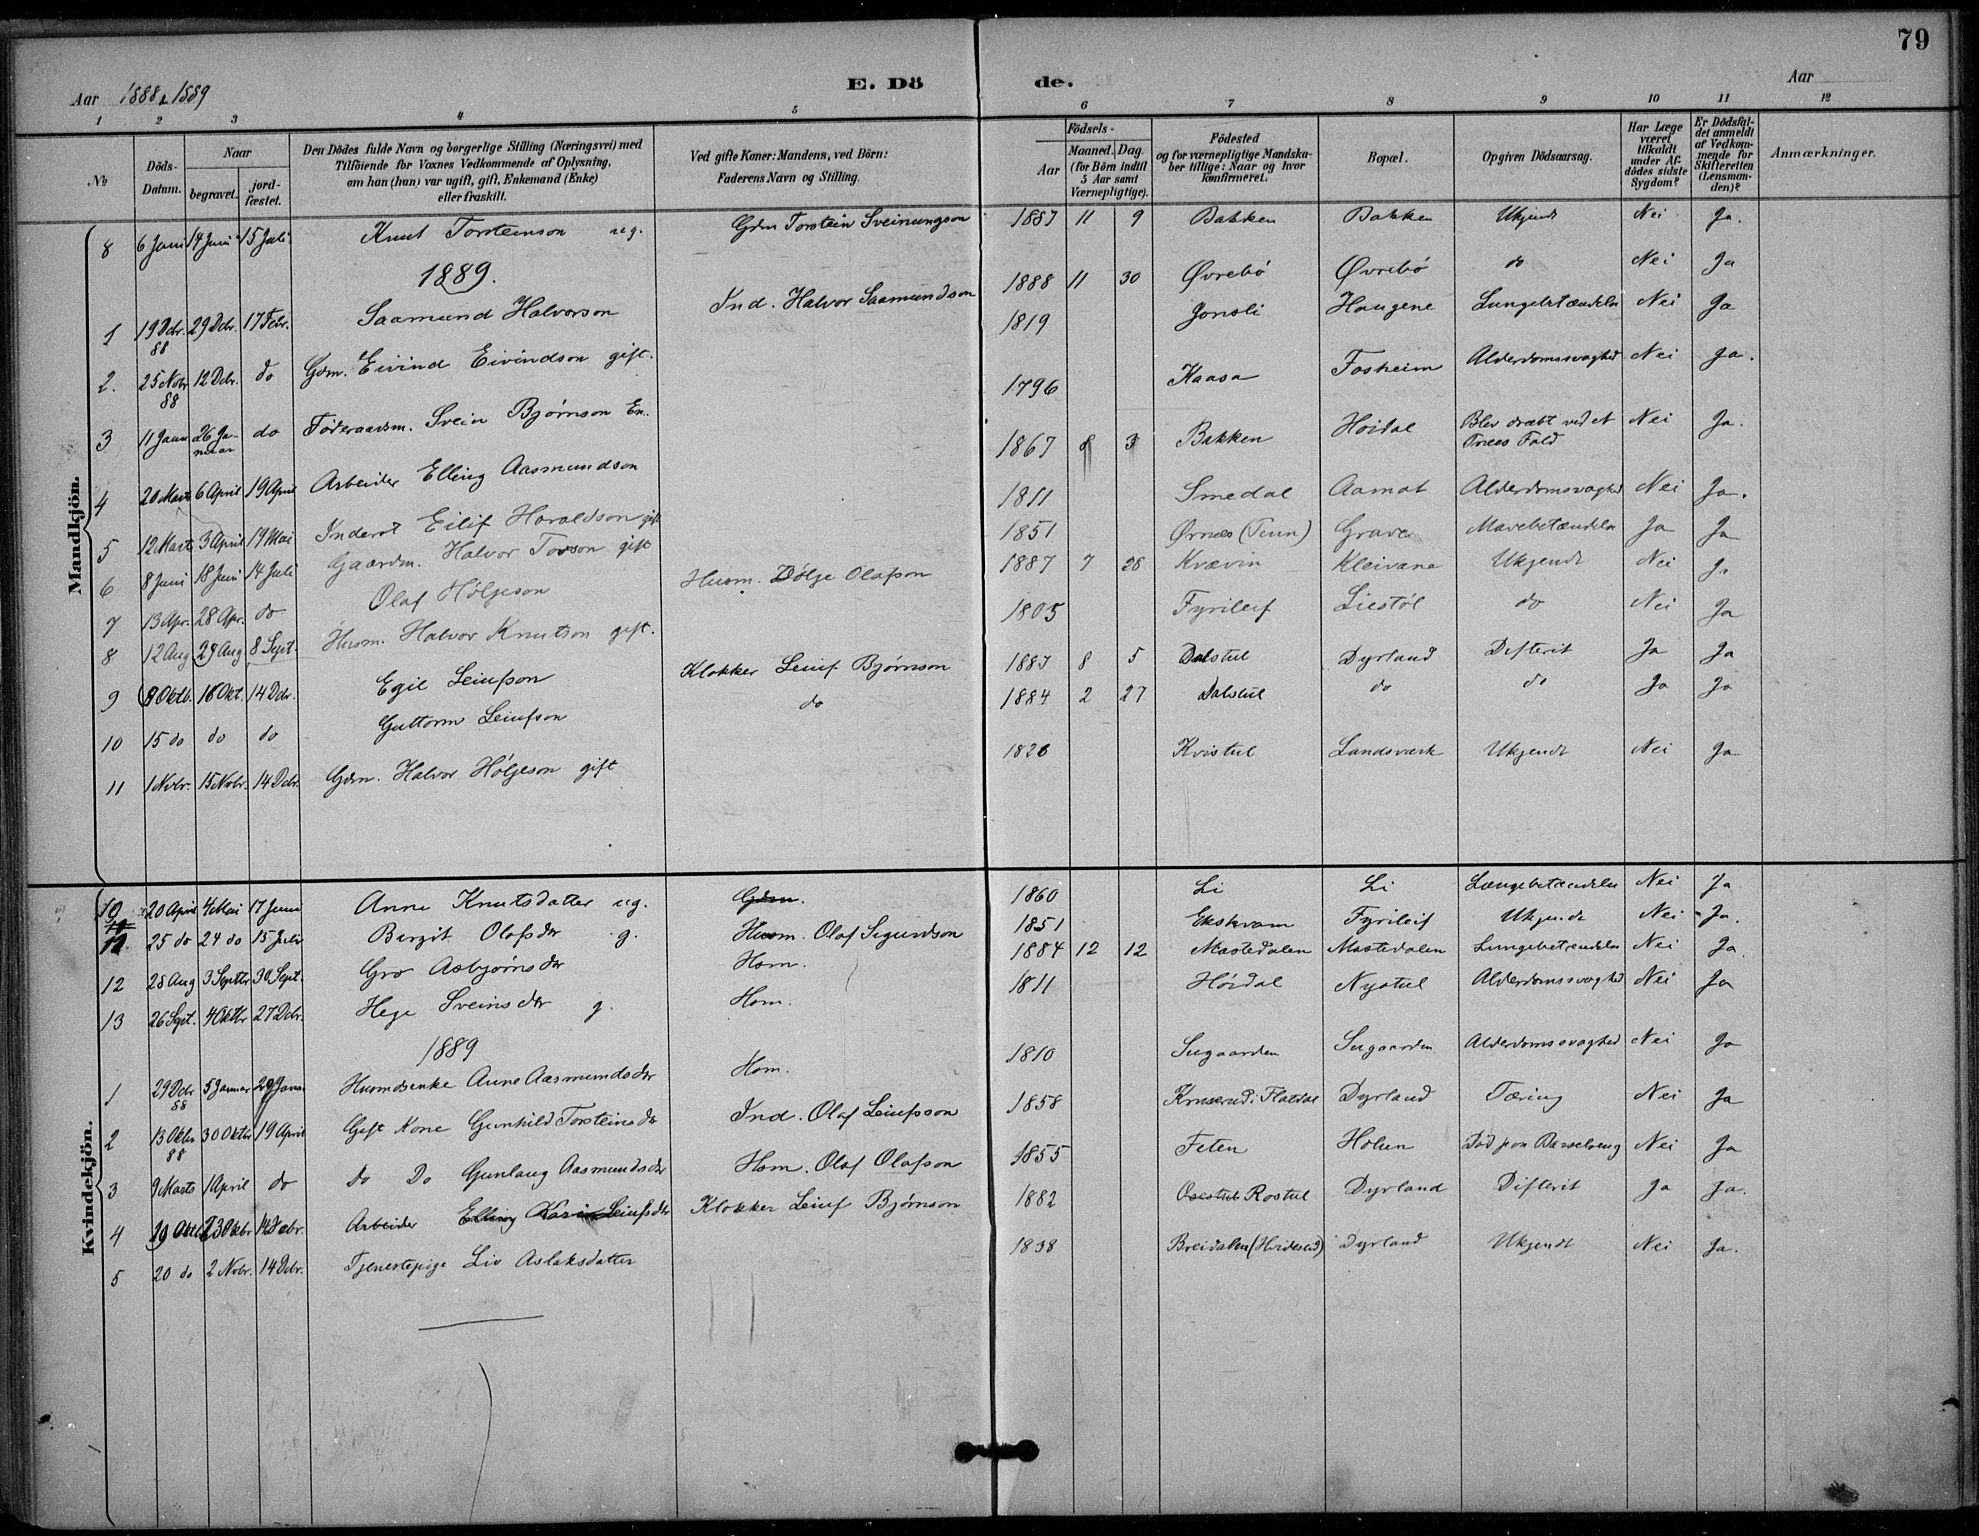 79
Aar 1888 & 1889
E. Dö de.
Aar
1 2 3 4 5 6 7 8 9 10 11 12
№
Döds-Datum.
Naar
begravet.
jord-fæstet.
Den Dödes fulde Navn og borgerlige Stilling (Næringsvei) med
Tilföiende for Voxnes Vedkommende af Oplysning,
om han (hun) var ugift, gift, Enkemand (Enke)
eller fraskilt.
Ved gifte Koner: Mandens, ved Börn:
Faderens Navn og Stilling.
Födsels-
Aar
Maaned. Dag.
(for Börn indtil
5 Aar samt
Værnepligtige).
Födested
og for værnepligtige Mandska-
ber tillige: Naar og hvor
konfirmeret.
Bopæl.
Opgiven Dödsaarsag.
Har Læge
været
tilkaldt
under Af-
dödes sidste
Sygdom?
Er Dödsfal-
det anmeldt
af Vedkom-
mende for
Skifteretten
(Lensman-
den)?
Anmærkninger.
Mandkjön.
8 6 Juni 14 Juni 15 Juli Knut Torsteinson ug. Gdm Torstein Sveinungson 1887 11 9 Bakken Bakken Ukjendt Nei Ja.
1889.
1 19 Dcbr. 88 29 Dcbr. 17 Febr. Saamund Halvorson Ind. Halvor Saamundson 1888 11 30 Øvrebø Øvrebø do Nei Ja
2. 25 Novbr 88 12 Dcbr. do Gdm. Eivind Eivindson gift. 1819 Jonsli Haugene Lungebetændelse Nei Ja
3 11 Janu 26 Januar do Föderaadsm. Svein Bjørnson En. 1796 Kaasa Fosheim Alderdomssvaghed Nei Ja.
4 20 Marts 6 April 19 April Arbeider Elling Aasmundson 1867 8 3 Bakken Höidal Blev dræbt ved et Træes Fald Nei Ja.
5 12 Marts 3 April 19 Mai Inderst Eilif Haraldson gift 1811 Smedal Aamot Alderdomsvaghed Nei Ja.
6 8 Juni 18 Juni 14 Juli Gaardm. Halvor Tovson gift 1851 Ørnes (Tinn) Grave Mavebetændelse Ja Ja
7 13 Apr. 28 Apr. do Olaf Hølgeson Husm. Hølge Olafson 1887 7 28 Kvævin Kleivane Ukjendt Nei Ja
8 12 Aug 24 Aug 8 Sept. Husm. Halvor Knutson gift. 1805 Fyrileif Liestöl do Nei Ja
9 9 Oktb. 16 Okt. 14 Dcbr. Egil Leiufson Klokker Leiuf Bjørnson 1887 8 5 Dalstul Dyrland Difterit Ja Ja
10 15 do do do Guttorm Leiufson do 1884 2 27 Dalstul do do Ja Ja
11 1 Novbr. 15 Novbr. 14 Dcbr. Gdm. Halvor Hølgeson gift 1826 Kvistul Landsverk Ukjendt Nei Ja
Kvindekjön.
10 20 April 4 Mai 17 Juni Anne Knutsdatter ug. Gdm. 1860 Li Li Lungebetændelse Nei Ja
11 25 do 24 do 15 Juli Bergit Olafsdr g. Husm. Olaf Sigurdson 1851 Ekskvam Fyrileif Ukjendt Nei Ja.
12 28 Aug 3 Septbr 30 Sept. Gro Asbjørnsdr Hsm. 1884 12 12 Mastedalen Mastedalen Lungebetændelse Nei Ja.
13 26 Sept. 4 Oktbr 27 Dcbr. Hege Sveinsdr g. Hsm. 1811 Höidal Nystul Alderdomssvaghed Nei Ja
1889
1 29 Dcbr 88 5 Januar 29 Janua Husmdsenke Anne Aasmundsdr Hsm. 1810 Sugaarden Sugaarden Alderdomssvaghed Nei Ja
2 13 Oktbr 88 30 Oktbr 19 April Gift Kone Gunhild Torsteinsdr Ind. Olaf Leiufsson 1858 Flatdal Dyrland Tæring Nei Ja
3 9 Marts 1 April do do Do Gunlaug Aasmundsdr Hsm. Olaf Olafson 1855 Feten Holien Död paa Barselseng Nei Ja
4 19 Oktb 23 Oktbr 14 Decbr. Arbeider Elling Kari Leiufsdr Klokker Leiuf Bjørnson 1882 Rostul Dyrland Difterit Ja Ja.
5 20 do 2 Novbr. 14 Dcbr. Tjenestepige Liv Aslaksdatter 1838 Breidalen (Hvideseid) Dyrland Ukjendt Nei Ja.